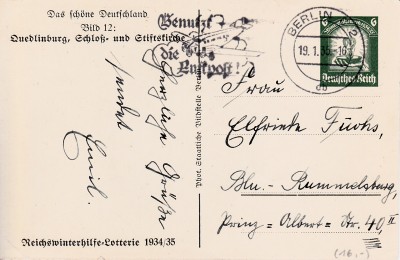 Das schöne Deutschland
Bild 12:
Quedlinburg, Schloß- und Stiftskirche
Herzliche Grüße
sendet
Emil.
Reichswinterhilfe-Lotterie 1934/35
Phot. Staatliche Bildstelle Berlin
Benutzt
die
Luftpost!
BERLIN
19.1.35
6
6
Deutsches Reich
Frau
Elfriede Fuchs,
Bln.-Rummelsburg,
Prinz-Albert-Str. 40, II
(16.-)